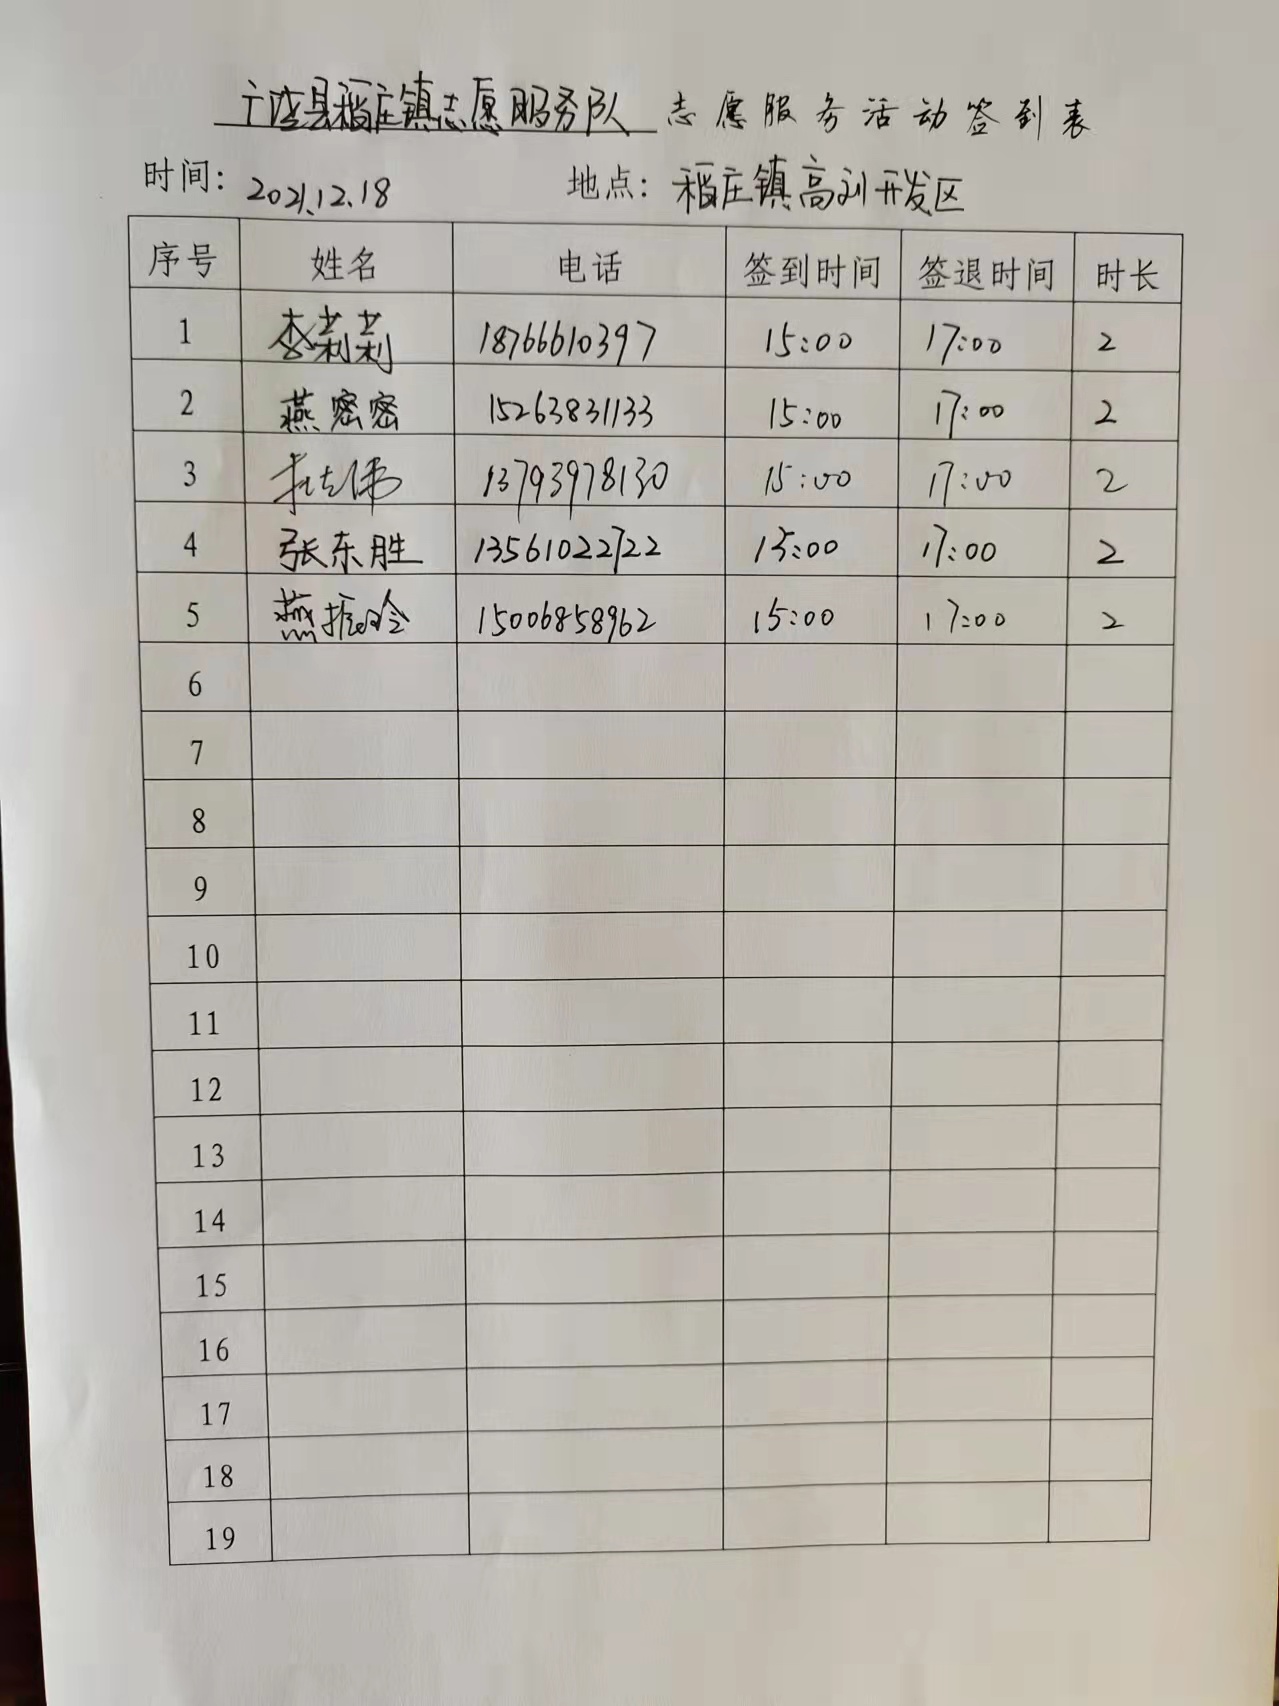 广饶县稻庄镇志愿服务队 志愿服务活动签到表
时间: 2021.12.18 地点: 稻庄镇高刘开发区
序号 姓名 电话 签到时间 签退时间 时长
1 李莉莉 18766610397 15:00 17:00 2
2 燕密密 15263831133 15:00 17:00 2
3 13793978130 15:00 17:00 2
4 张东胜 13561022722 15:00 17:00 2
5 燕振玲 15006858962 15:00 17:00 2
6
7
8
9
10
11
12
13
14
15
16
17
18
19